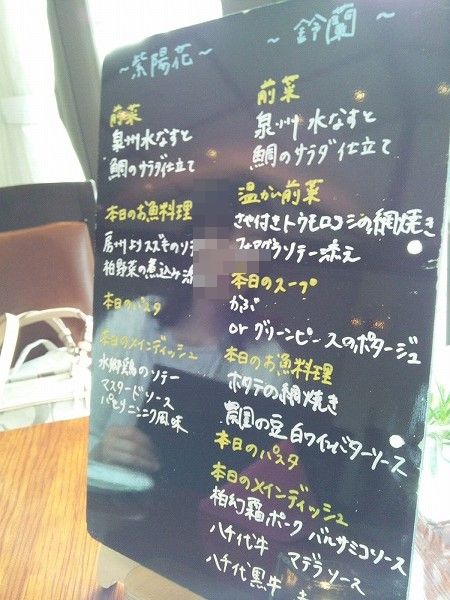 ~紫陽花~
前菜
泉州水なすと
鯛のサラダ仕立て
本日のお魚料理
房州よりスズキのソテー
柏野菜の煮込み
本日のパスタ
本日のメインディッシュ
水郷鶏のソテー
マスタードソース
パセリニンニク風味
~鈴蘭~
前菜
泉州水なすと
鯛のサラダ仕立て
温かい前菜
さや付きトウモロコシの網焼き
フォアグラソテー添え
本日のスープ
かぶ
or グリーンピースのポタージュ
本日のお魚料理
ホタテの網焼き
異国の豆 白ワインバターソース
本日のパスタ
本日のメインディッシュ
柏幻霜ポーク バルサミコソース
八千代牛 マデラソース
八千代黒牛